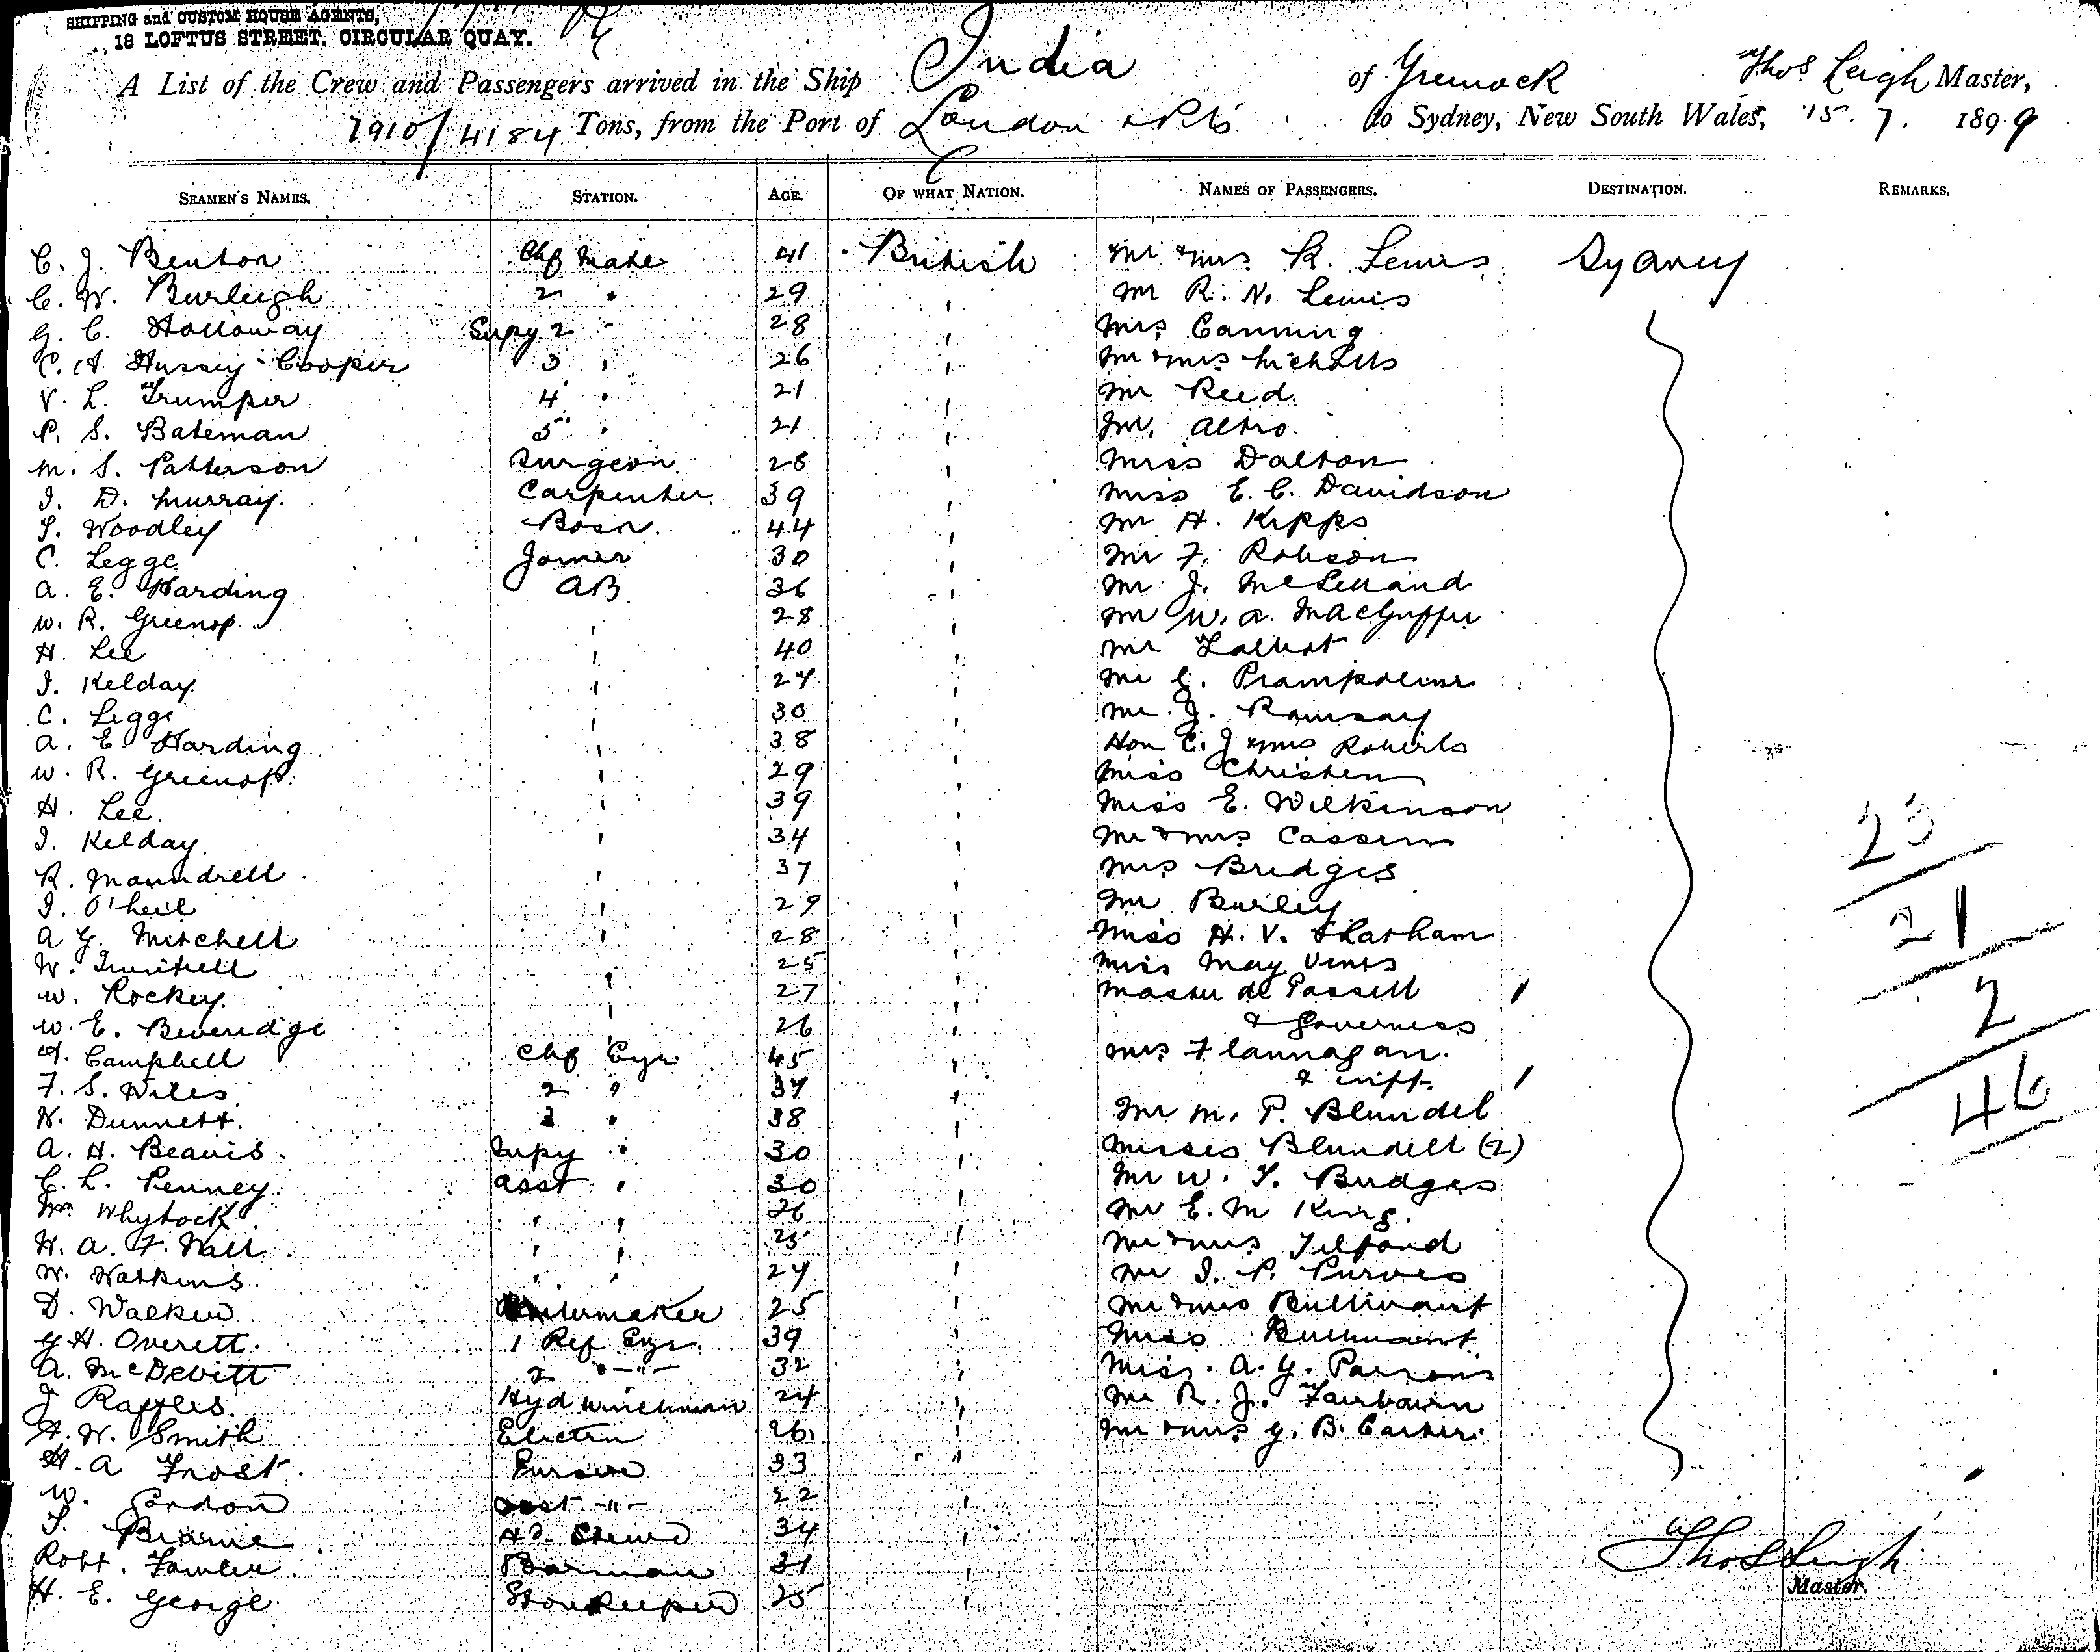 SHIPPING and CUSTOM HOUSE AGENTS,
18 LOFTUS STREET, CIRCULAR QUAY.
A List of the Crew and Passengers arrived in the Ship India of Greenock Thos Leigh Master,
7910/4184 Tons, from the Port of London & Pts to Sydney, New South Wales, 15. 7. 1899
SEAMEN'S NAMES. STATION. AGE. OF WHAT NATION. NAMES OF PASSENGERS. DESTINATION. REMARKS.
C. J. Benton Chf Mate 41 British Mr & Mrs R. Lewis Sydney
C. W. Burleigh 2 " 29 " Mr R. N. Lewis
G. C. Holloway Supy 2 " 28 " Mrs Canning
C. A Hussey-Cooper 3 " 26 " Mr & Mrs Nicholls
V. L. Trumper 4 " 21 " Mr Reed
P. S. Bateman 5 " 21 " Mr.
M. S. Patterson Surgeon 28 " Miss Dalton
J. D. Murray Carpenter 39 " Miss E. C. Davidson
S. Woodley Bosn 44 " Mr H. Kipps
C. Legge Joiner 30 " Mr F. Robson
A. E. Harding AB 36 " Mr J. McLelland
W. R. Greenop " 28 " Mr W. A. MacGuffie
H. Lee " 40 " Mr Talbot
J. Kelday " 24 " Mr C. Prampolini
C. Legge " 30 " Mr J. Ramsay
A. E Harding " 38 " Hon C. J & Mrs Roberts
W. R. Greenop " 29 " Miss Christen
H. Lee " 39 " Miss E. Wilkinson
J. Kelday " 34 " Mr & Mrs Cassim
R. Maundrell " 37 " Mrs Bridges
J. O'Neil " 29 " Mr Burley
A G. Mitchell " 28 " Miss H. V. Latham
W. " 25 " Miss May Vines
W. Rockey " 27 " Master de Passell
W. E. Beveridge " 26 " & Governess
Campbell Chf Eng 45 " Mrs Flannagan
F. S. Wiles 2 " 37 " & inft
W. Dunnett 3 " 38 " Mr M. P. Blundel
A. H. Beavis Supy " 30 " Misses Blundell (2)
C. L. Penney Asst " 30 " Mr W. T. Budges
Wm Whytock " " 26 " Mr E. M King
H. A. F. Hall " " 25 " Mr & Mrs Telford
W. Watkins " " 24 " Mr J. P. Purves
D. Walker Boilermaker 25 " Mr & Mrs Bullivant
G H. Overett 1 Ref Engr 39 " Miss Bullivant
A. McDevitt 2 " - " - 32 " Miss A. G. Parsons
J Raffles Hyd Winchman 24 " Mr R. J. Fairbairn
A. W. Smith Electrn 26 " Mr & Mrs G. B. Carter
H. A Frost Purser 33 "
W. Gordon Asst - " - 22 "
S. Browne Hd. Stewd 34 "
Robt. Fowler Barman 31 "
H. E. George Storekeeper 25 "
23
21
2
46
Thos Leigh
Master.